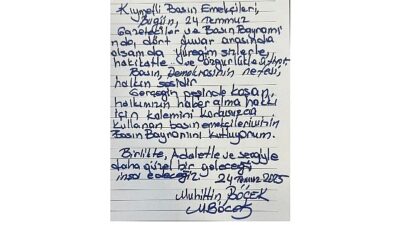 Kıymetli Basın Emekçileri,
Bugün, 24 Temmuz
Gazeteciler ve Basın Bayramı'
nda, dört duvar arasında
olsam da yüreğim sizlerle
hakikatle ve özgürlükle atıyor.
Basın, Demokrasinin nefesi,
halkın sesidir
Gerçeğin peşinde koşan,
halkımızın haber alma hakkı
için kalemini korkusuzca
kullanan basın emekçilerimizin
Basın Bayramını kutluyorum.
Birlikte, Adaletle ve sevgiyle
daha güzel bir geleceği
inşa edeceğiz. 24 Temmuz 2025
Muhittin BÖCEK
MBöcek